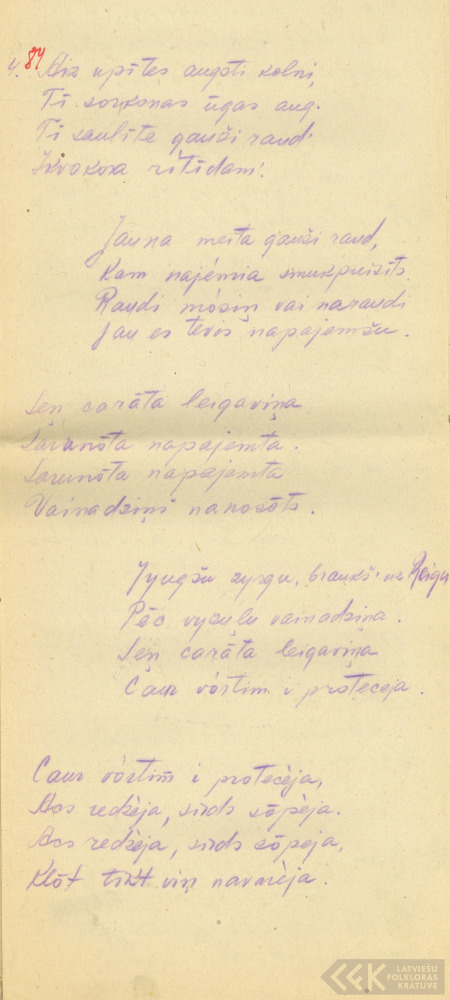 4. 84 Aiz upītes augsti kolni,
Tī sorkonas ūgas aug.
Tī saulīte gauži raud'
Kvokora ritīdam'.
Jauna meita gauži raud,
Kam najēmia smukpuisits
Raudi mōsiņ vai naraudi
Jau es tevis napajemšu.
Seņ carāta leigaviņa
Sarunōta napajemta.
Sarunōta napajemta
Vainadziņš nanosōts.
Jyugšu zyrgu, braukš' uz Reigu
Pēc vyzuļu vainadziņa.
Seņ carāta leigaviņa
Caur vōrtim i protecēja.
Caur vōrtim i protecēja,
Acs redzēja, sirds sōpēja.
Acs redzēja, sirds sōpēja,
Klōt tikt viņ navarēja.
LATVIEŠU
FOLKLORAS
KRĀTUVE